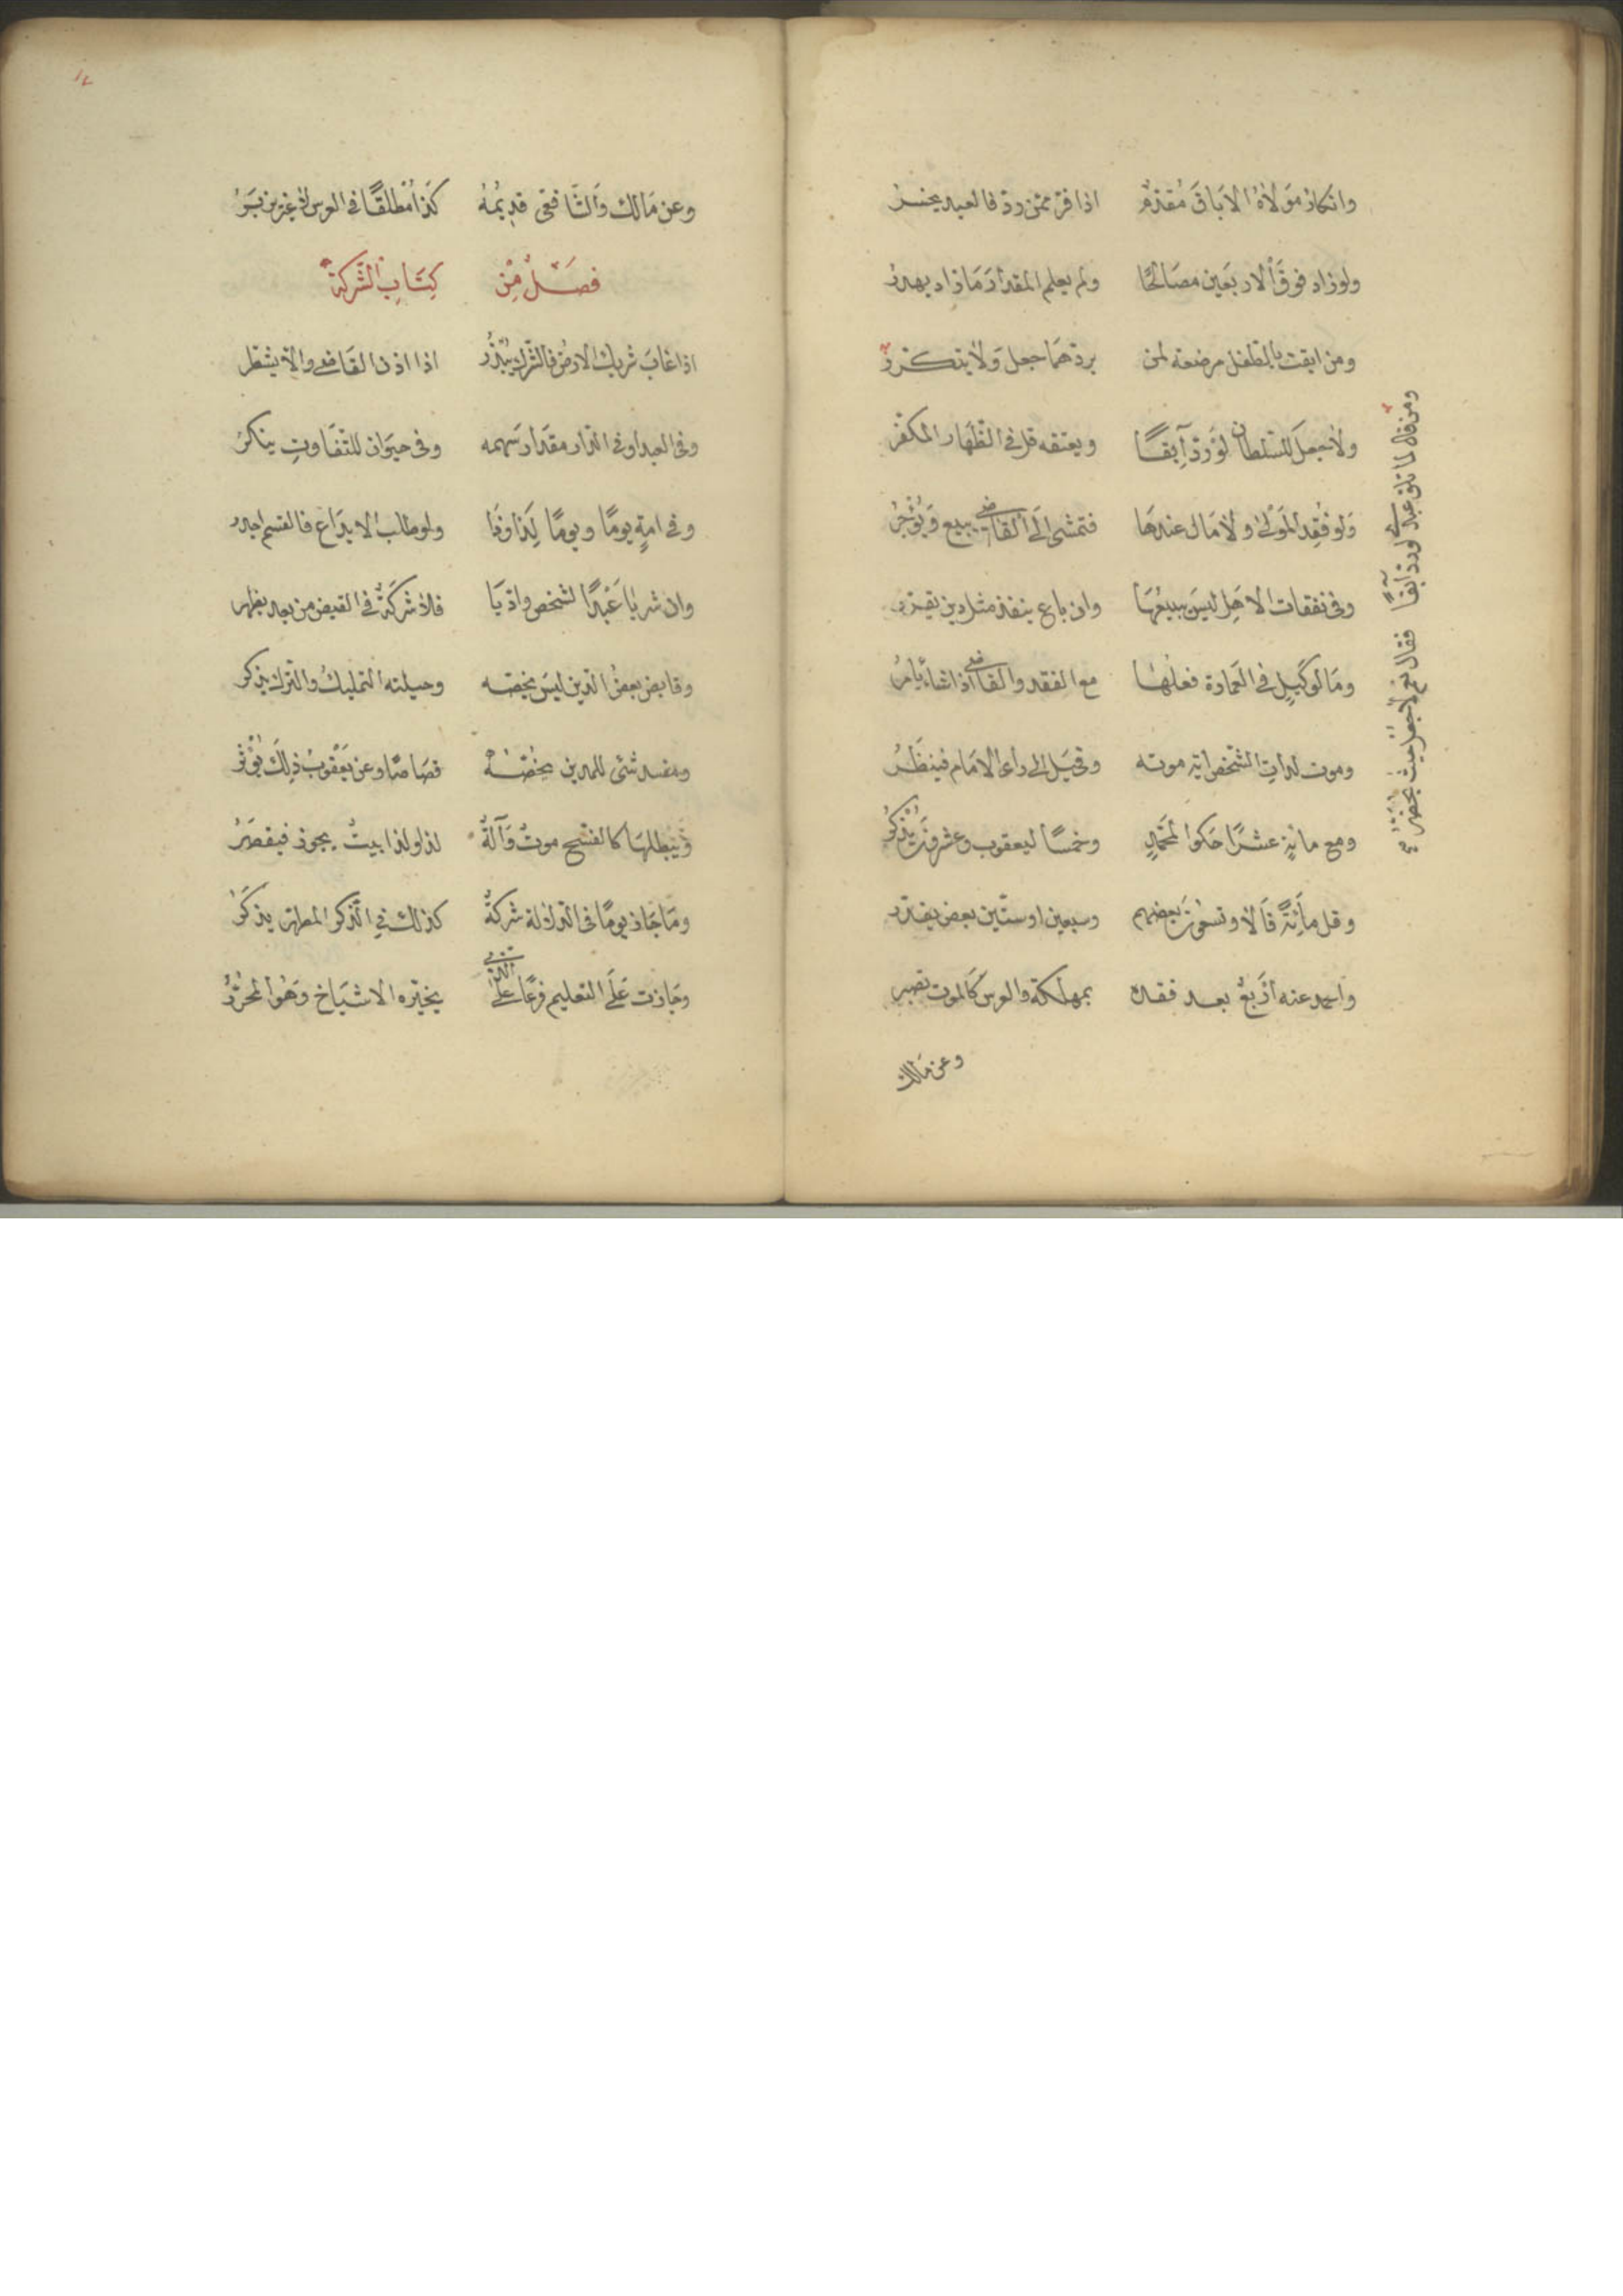 وانكار مولاه الاباق مقدم اذا فر ممن رد فالعبد يخسر
ولو زاد فوق الاربعين مصالحا ولم يعلم المقدار ما زاد يهدر
ومن ابقت بالطفل مرضعه لمن بردهما جعل ولا يتكرر
ولا جعل للسلطان لو رد آبقا ويعتقه قل في الظهار المكفر
ولو فقد المولى ولا مال عندها فتمشي الى القاضي يبيع ويؤجر
وفي نفقات الاهل ليس ببيعها وان باع ينفذ مثل دين يقرر
وما لوكيل في العمارة فعلها مع الفقد والقاضي اذا شاء يامر
وموت لدات الشخص اية موته وقيل الى راى الامام فينظر
ومع ماية عشرا حكوا لمحمد وخمسا ليعقوب وعشرون يذكر
وقل مائة قالا وتسعون بعضهم وسبعين او ستين بعض يقرر
واحمد عنه اربع بعد فقده بمهلكة والعرس كالموت تصبر
وعن مالك
ومن قال لما تلق عبدي لو رد آبقا فقال نعم لا جعل حيث يحضر
١٢
وعن مالك والشافعي قديمه كذا مطلقا في العرس لا غير
فصل من كتاب الشركة
اذا غاب شريك الارض فالشرك يبذر اذا اذن القاضي والا يشطر
وفي العبد او في الدار مقدار سهمه وفي حيوان للتفاوت يناكر
وفي امة يوما ويوما لذا وذا ولو طلب الايداع فالقسم اجدر
وان شريا عبدا لشخص واديا فلا شركة في القبض من بعد يظهر
وقابض بعض الدين ليس يخصه وحيلته التمليك والترك يذكر
ومفسد شئ للمدين يخصه قصاصا وعن يعقوب ذلك يؤثر
ويبطلها كالفسخ موت وآلة لذا ولذا بيت يجوز فيقصر
وما جاز يوما في الدلالة شركة كذلك في الذكر المطهر يذكر
وجازت على التعليم فرعا على الذي يخيره الاشياخ وهو المحرر